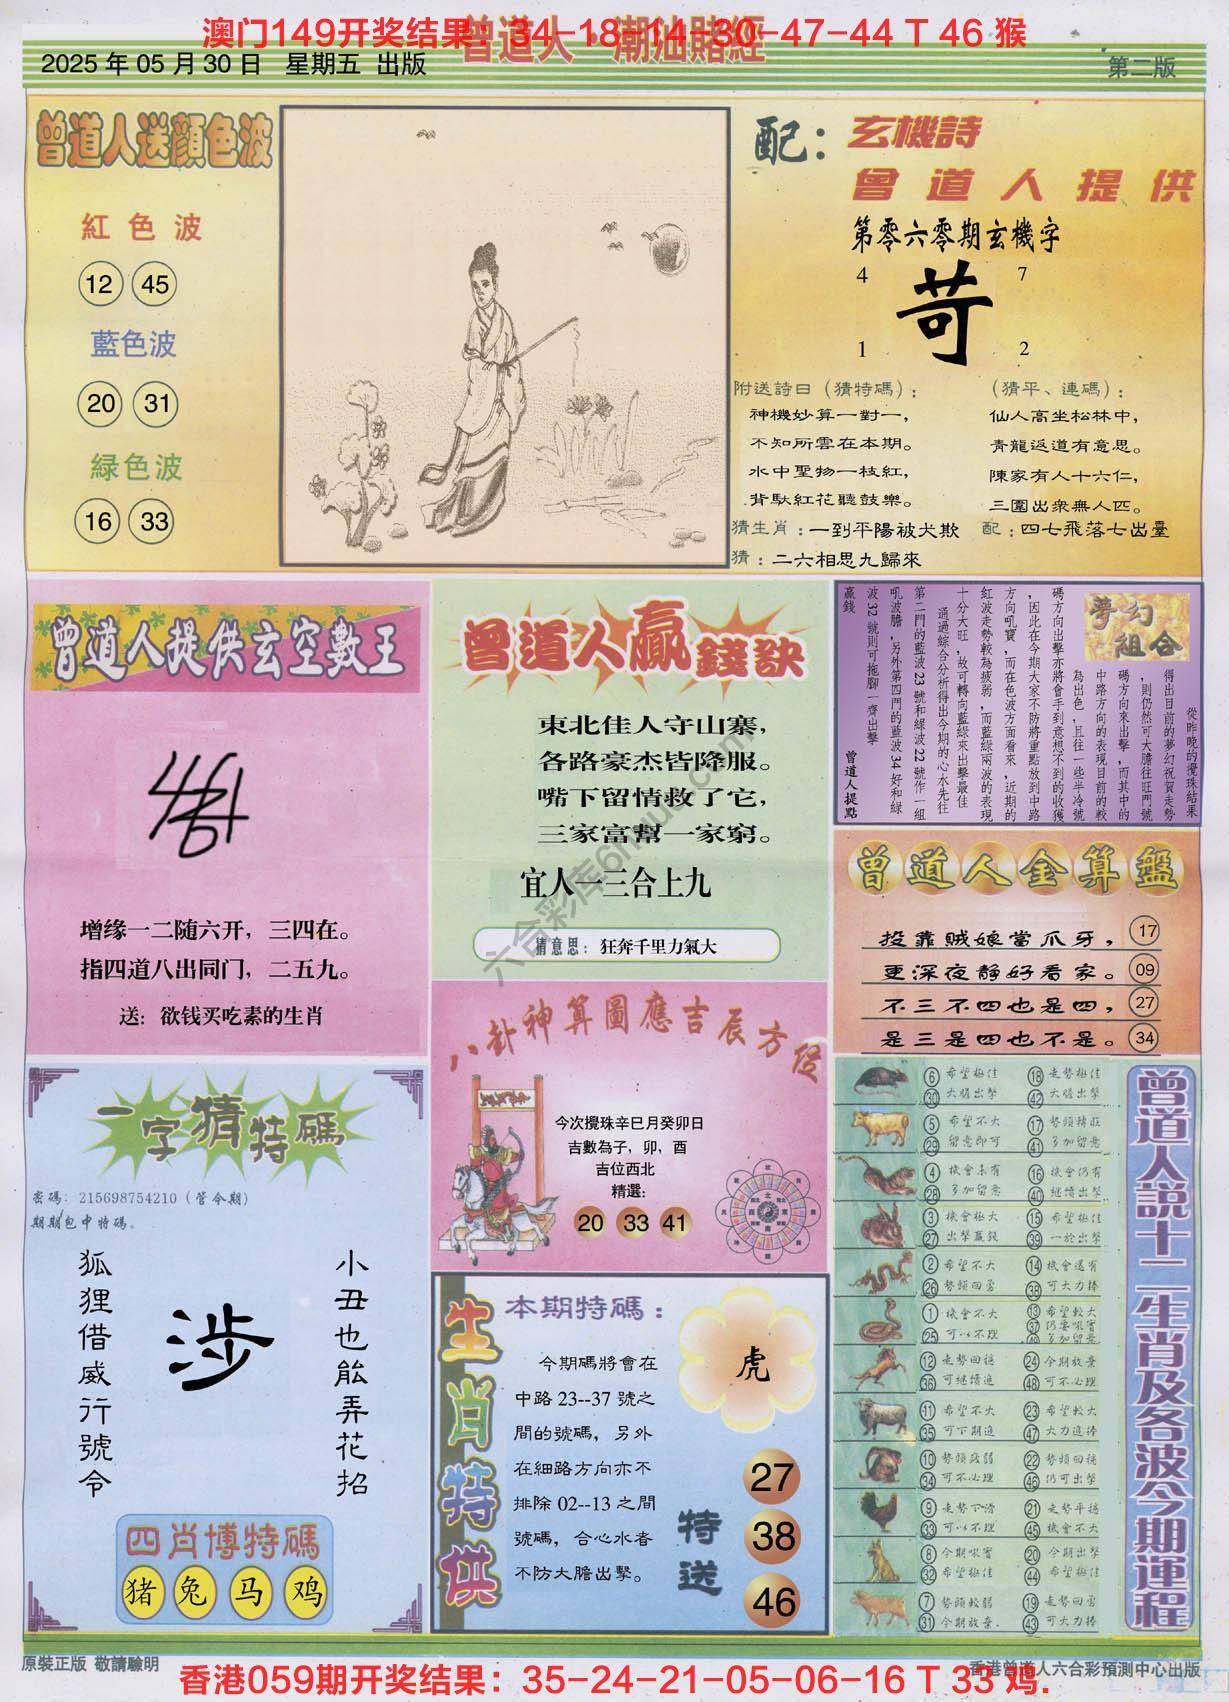 澳门149开奖结果：34-18-14-30-47-44 T 46 猴
曾道人·潮汕賭經
2025 年 05 月 30 日 星期五 出版
第二版
曾道人送顔色波
紅色波
12 45
藍色波
20 31
緑色波
16 33
配：玄機詩
曾道人提供
第零六零期玄機字
4 7
苛
1 2
附送詩日（猜特碼）：
神機妙算一對一，
不知所雲在本期。
水中聖物一枝紅，
背馱紅花聽鼓樂。
（猜平、連碼）：
仙人高坐松林中，
青龍返道有意思。
陳家有人十六仁，
三圍出衆無人匹。
猜生肖：一到平陽被犬欺
配：四七飛落七出臺
猜：二六相思九歸來
曾道人提供玄空數王
增缘一二随六开，三四在。
指四道八出同门，二五九。
送：欲钱买吃素的生肖
曾道人贏錢訣
東北佳人守山寨，
各路豪杰皆降服。
嘴下留情救了它，
三家富幫一家窮。
宜人一三合上九
猜意思：狂奔千里力氣大
夢幻組合
從昨晚的攪珠結果
得出目前的夢幻祝賀走勢
，則仍然可大膽往旺門號
碼方向來出擊，而其中的
中路方向的表現目前的較
為出色，且往一些半冷號
碼方向出擊亦將會手到意想不到的收獲
，因此在今期大家不防將重點放到中路
方向吼寶，而在色波方面看來，近期的
紅波走勢較為疲弱，而藍緑兩波的表現
十分大旺，故可轉向藍緑來出擊最佳
通過綜合分析得出今期的心水先往
第二門的藍波23號和緑波22號作一組
吼波膽，另外第四門的藍波34好和緑
波32號則可拖腳一齊出擊
贏錢
曾道人提點
曾道人金算盤
投靠賊娘當爪牙， 17
更深夜静好看家。 09
不三不四也是四， 27
是三是四也不是。 34
八卦神算圖應吉辰方位
今次攪珠辛巳月癸卯日
吉數為子，卯，酉
吉位西北
精選：
20 33 41
一字猜特碼
密碼：215698754210（管令期）
期期包中特碼。
狐狸借威行號令
涉
小丑也能弄花招
四肖博特碼
猪 兔 马 鸡
生肖特供
本期特碼：
今期碼將會在
中路 23--37 號之
間的號碼，另外
在細路方向亦不
排除 02--13 之間
號碼，合心水者
不防大膽出擊。
虎
特送
27
38
46
曾道人説十二生肖及各波今期運程
6 希望極佳 18 走勢極佳
30 大膽出擊 42 大膽出擊
5 希望不大 17 勢頭轉旺
29 留意即可 41 多加留意
4 機會未有 16 機會仍有
28 多加留意 40 繼續出擊
3 機會極大 15 希望極佳
27 出擊贏錢 39 一於出擊
2 希望不大 14 機會還有
26 勢頭回勇 38 可大力棒
1 機會不大 13 希望較大
25 可以不理 37 49 多加留意
12 走勢回穩 24 今期放棄
36 可繼續追 48 可不必理
11 希望不大 23 希望較大
35 可下期追 47 大力追棒
10 勢頭疲弱 22 勢頭回穩
34 可不必理 46 仍可出擊
9 走勢下滑 21 走勢平穩
33 可以不理 45 機會不大
8 今期吼寶 20 今期出擊
32 希望極佳 44 希望極佳
7 勢頭較弱 19 走勢回勇
31 今期放棄。 43 可大力棒
原裝正版 敬請驗明
香港曾道人六合彩預測中心出版
香港059期开奖结果：35-24-21-05-06-16 T 33 鸡.